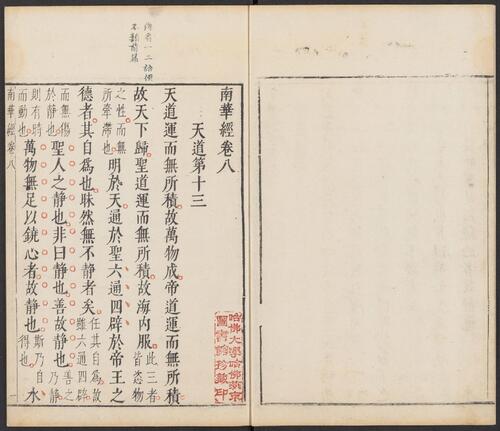 南華經卷八
天道第十三
天道運而無所積故萬物成帝道運而無所積
故天下歸聖道運而無所積故海內服此三者皆恣物
之性而無所牽滯也明於天通於聖六通四辟於帝王之
德者其自為也昧然無不靜者矣任其自為故雖六通四辟
而無傷於靜也聖人之靜也非曰靜也善故靜也善之乃靜
則有時而動也萬物無足以鐃心者故靜也斯乃自得也水
南華經卷八 一
哈佛大學哈佛燕京
圖書館珍藏印